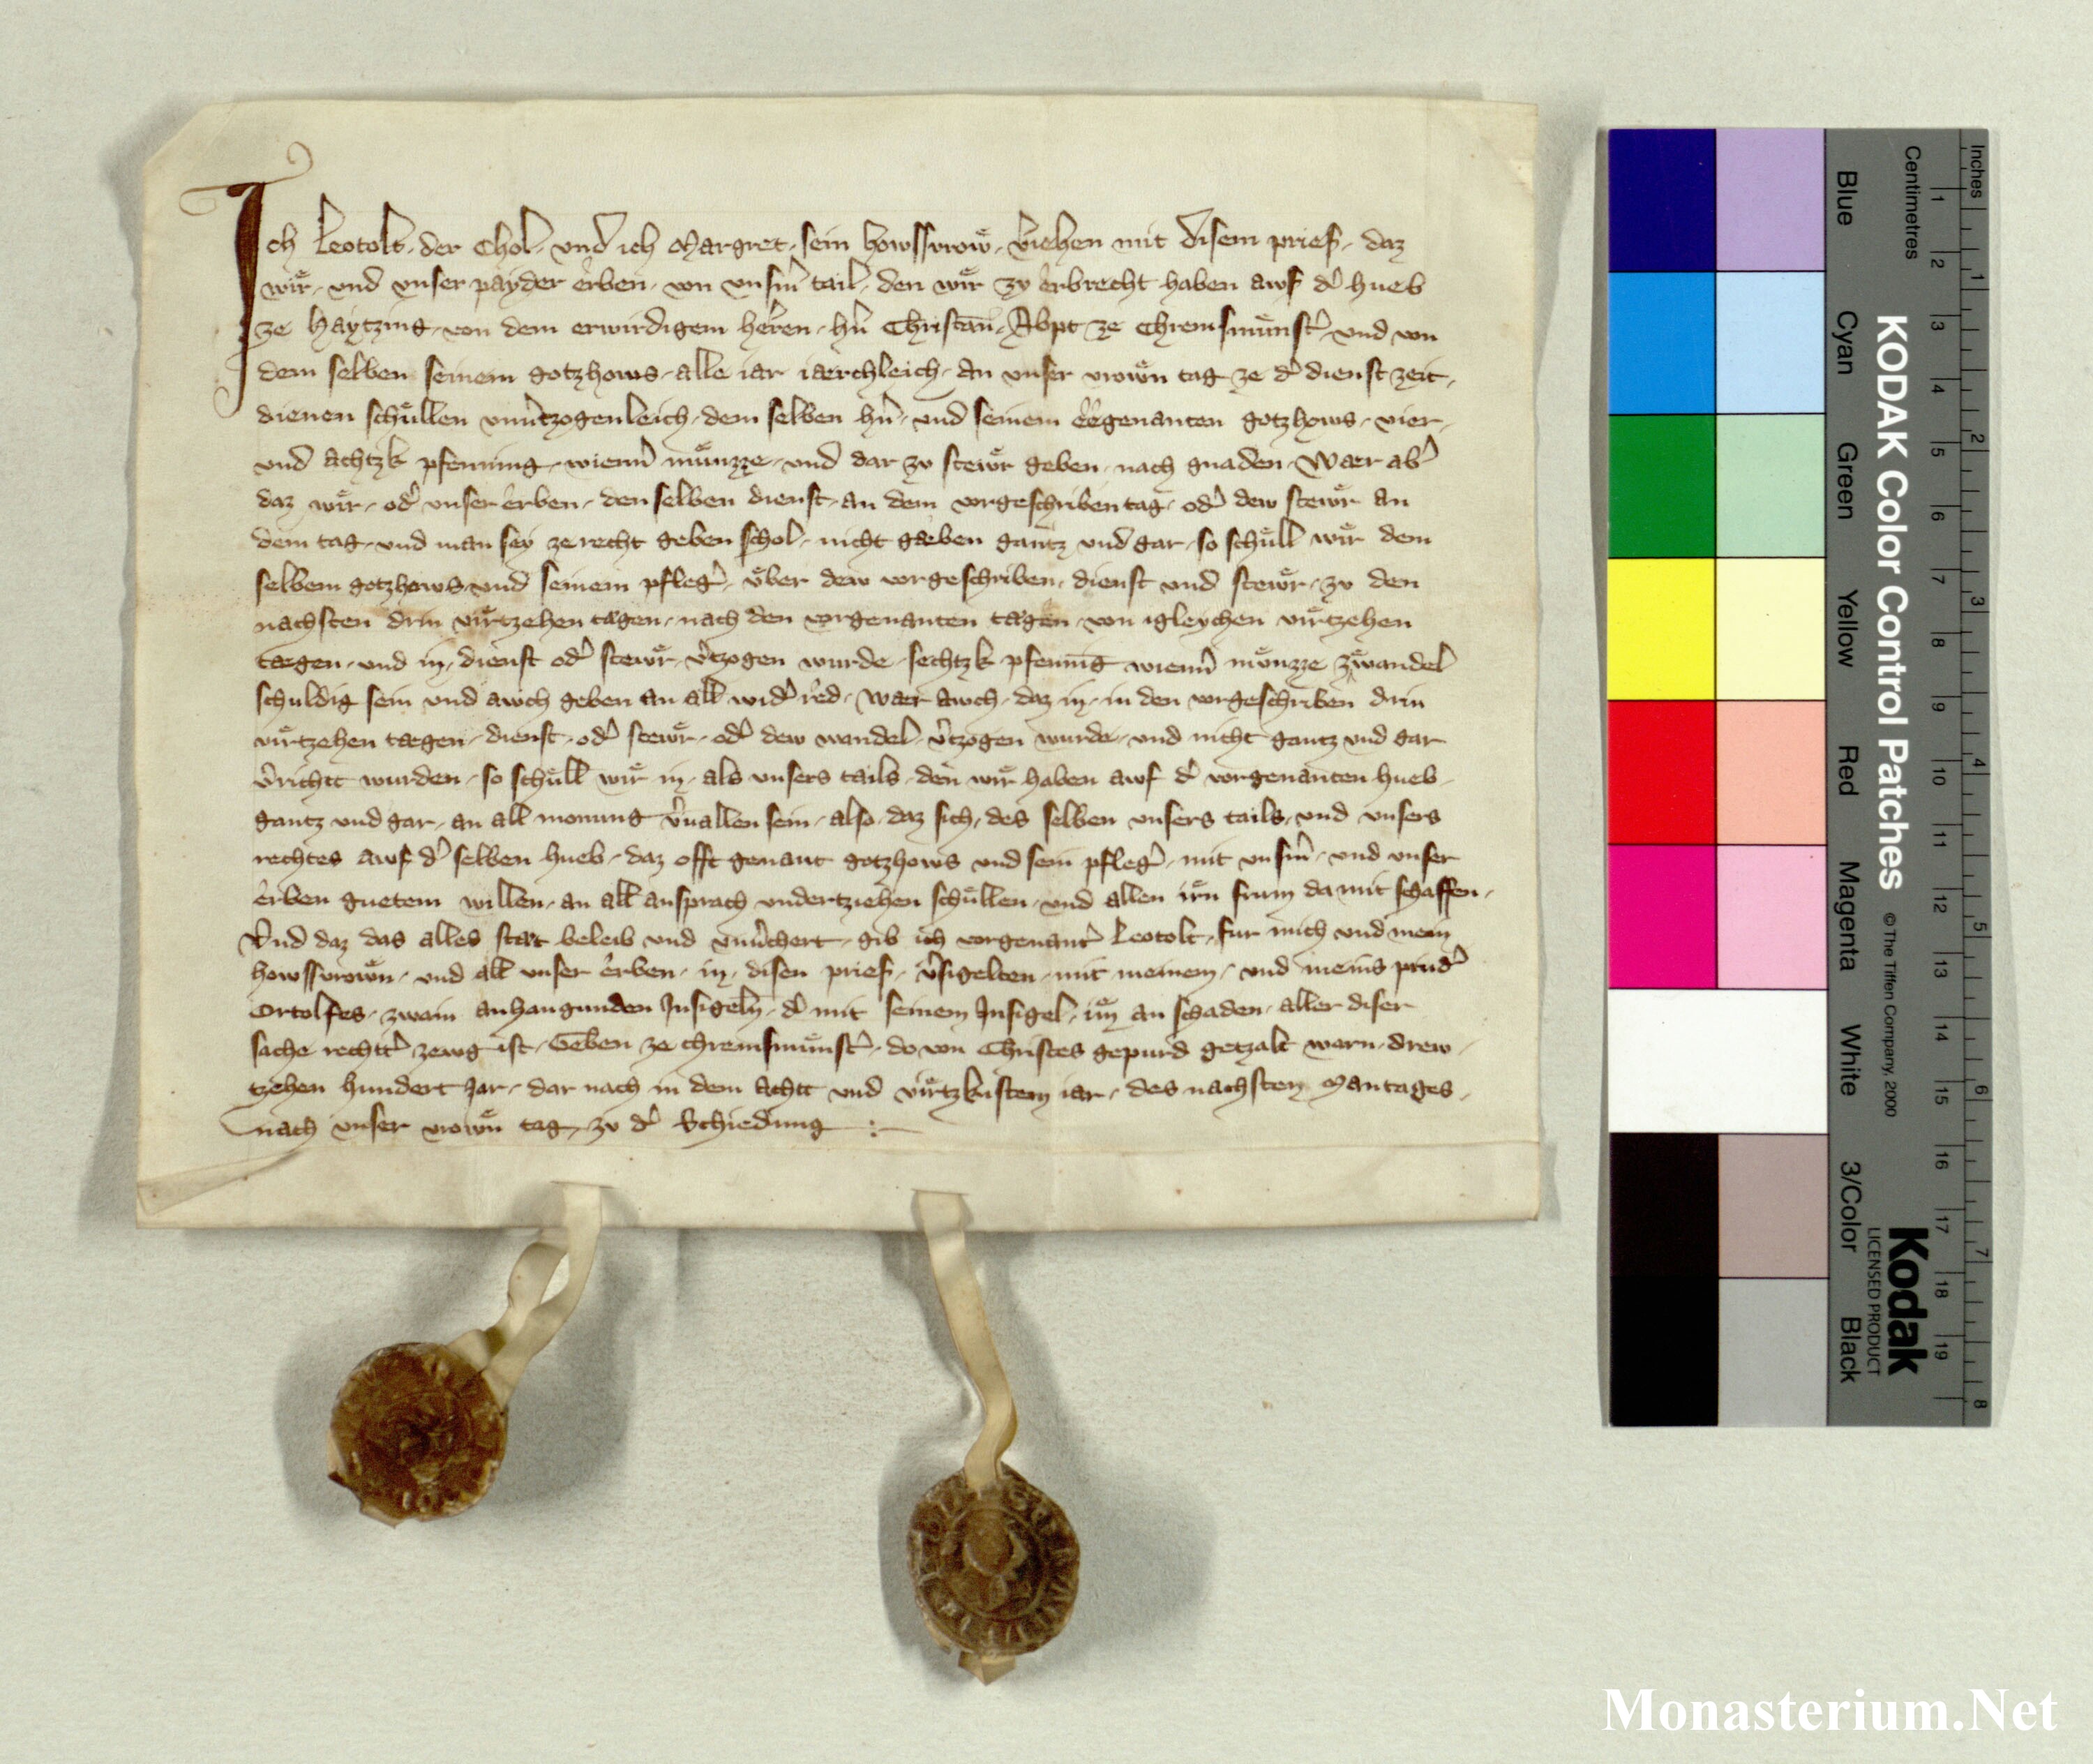 Ich Leotolt der Chol und ich Margret sein howssvrow v̾iehen mit disem prief daz
wir und unser payder erben von unsm̾ tail den wir zv erbrecht haben awf d̾ hueb
ze Haytzing von dem erwirdigem herren hn̾ Christan Abpt ze Chremsmunst̾ und von
dem selben seinem gotzhows alle iar iaerchleich an unser vrown tag ze d̾ dienst zeit
dienen schullen unu̾tzogenleich dem selben hn̾ und seinem eegenanten gotzhows vier
und achtzk pfenning wienn̾ munzze und dar zv stewr geben nach gnaden Waer ab̾
daz wir od̾ unser erben den selben dienst an dem vorgeschriben tag od̾ dew stewr an
dem tag und man sey ze recht geben schol nicht gaeben gantz und gar so schull wir dem
selbem gotzhows und seinem pfleg̾ vber dew vorgeschriben dienst und stewr zv den
nachsten drin virtzehen tagen nach den vorgenanten tagen von igleychen virtzehen
taegen und in dienst od̾ stewr v̾tzogen wurde sechtzk pfennīg wienn̾ munzze ze wandel
schuldig sein und awch geben an all wid̾ red waer awch daz in in den vorgeschriben drin
virtzehen taegen dienst od̾ stewr od̾ dew wandel v̾tzogen wurde und nicht gantz und gar
v̾richtt wurden so schull wir in als unsers tails den wir haben awf d̾ vorgenanten hueb
gantz und gar an all monung v̾uallen sein also daz sich des selben unsers tails und unsers
rechtes awf d̾ selben hueb daz offt genant gotzhows und sein pfleg̾ mit unsm̾ und unser
erben guetem willen an all ansprach undertziehen schullen und allen irn frum da mit schaffen
Und daz das alles staet beleib und unu̾chert gib ich vorgenant̾ Leotolt fur mich und mein
howssvrown und all unser erben in disen prief v̾sigelten mit meinem und meins prud̾
Ortolfes zwain anhangunden Insigeln d̾ mit seinem Insigel im an schaden aller diser
sache rechtt̾ zewg ist Geben ze chremsmunst̾ do von Christes gepurd getzalt warn drew
tzehen hundert Jar dar nach in dem achtt und virtzkistem iar des nachsten Mantages
nach unser vrown tag zv d̾ Schiedung
Inches
Centimetres
1 2 3 4 5 6 7 8
1 2 3 4 5 6 7 8 9 10 11 12 13 14 15 16 17 18 19
KODAK Color Control Patches © The Tiffen Company, 2000
Kodak
LICENSED PRODUCT
Blue Cyan Green Yellow Red Magenta White 3/Color Black
Monasterium.Net